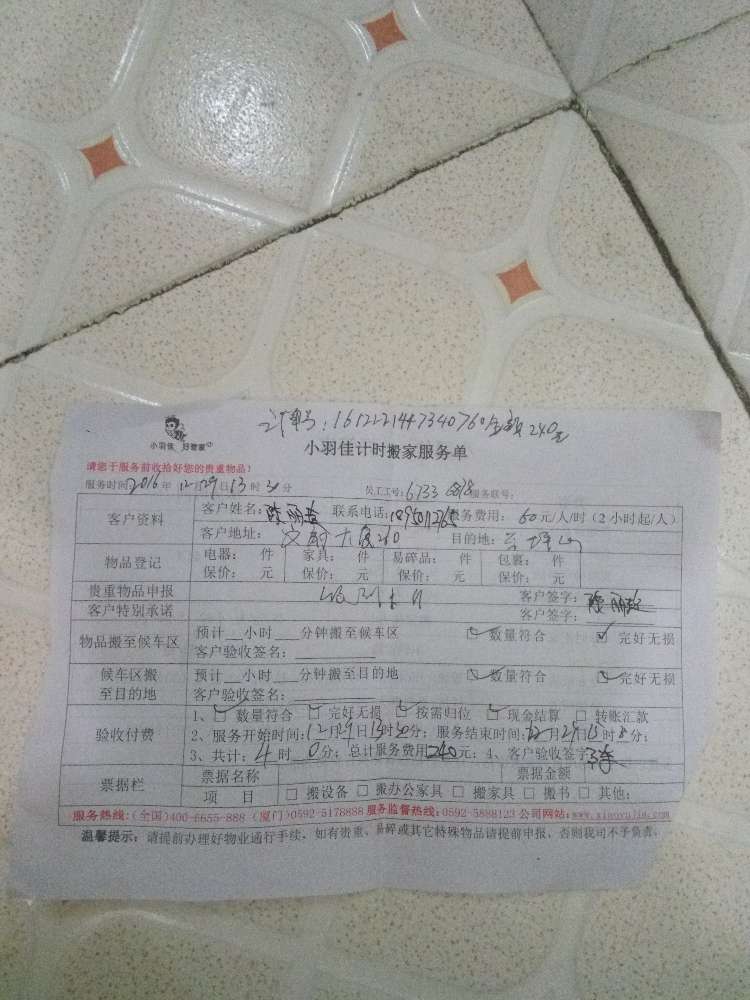 订单号：161222144734076 金额240元
小羽佳 好管家
小羽佳计时搬家服务单
请您于服务前收拾好您的贵重物品！
服务时间：2016年12月29日13时30分 员工工号：6733 6878 服务联号：
客户资料 客户姓名： 联系电话： 服务费用：60元/人/时（2小时起/人）
客户地址： 目的地：
物品登记 电器： 件 家具： 件 易碎品： 件 包裹： 件
保价： 元 保价： 元 保价： 元 保价： 元
贵重物品申报 客户签字：
客户特别承诺 客户签字：
物品搬至候车区 预计__小时___分钟搬至候车区 □数量符合 □完好无损
客户验收签名：
候车区搬至目的地 预计__小时___分钟搬至目的地 □数量符合 □完好无损
客户验收签名：
验收付费 1、□数量符合 □完好无损 □按需归位 □现金结算 □转账汇款
2、服务开始时间：12月29日13时30分；服务结束时间：12月29日15时 分；
3、共计：4时0分；总计服务费用240元；4、客户验收签字
票据栏 票据名称 票据金额
项 目 □搬设备 □搬办公家具 □搬家具 □搬书 □其他：
服务热线：(全国)400-6655-888 (厦门)0592-5178888 服务监督热线：0592-5888123 公司网站：www.xiaoyujia.com
温馨提示：请提前办理好物业通行手续，如有贵重、易碎或其它特殊物品请提前申报，否则我司不予负责。